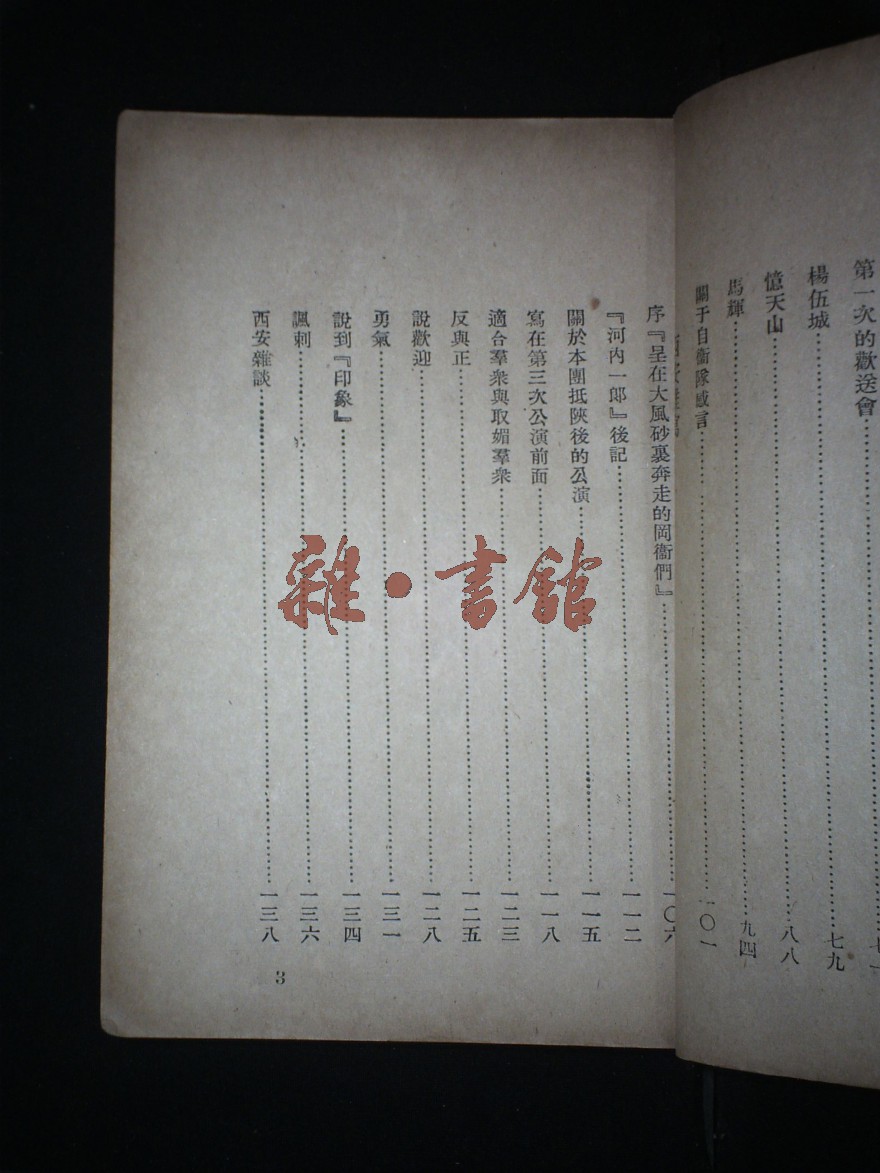 第一次的歡送會
楊伍城 七九
憶天山 八八
馬輝 九四
關于自衞隊感言 一〇一
序『呈在大風砂裏奔走的岡衞們』 一〇六
『河內一郎』後記 一一二
關於本團抵陝後的公演 一一五
寫在第三次公演前面 一一八
適合羣衆與取媚羣衆 一二三
反與正 一二五
說歡迎 一二八
勇氣 一三一
說到『印象』 一三四
諷刺 一三六
西安雜談 一三八
3
雜·書館